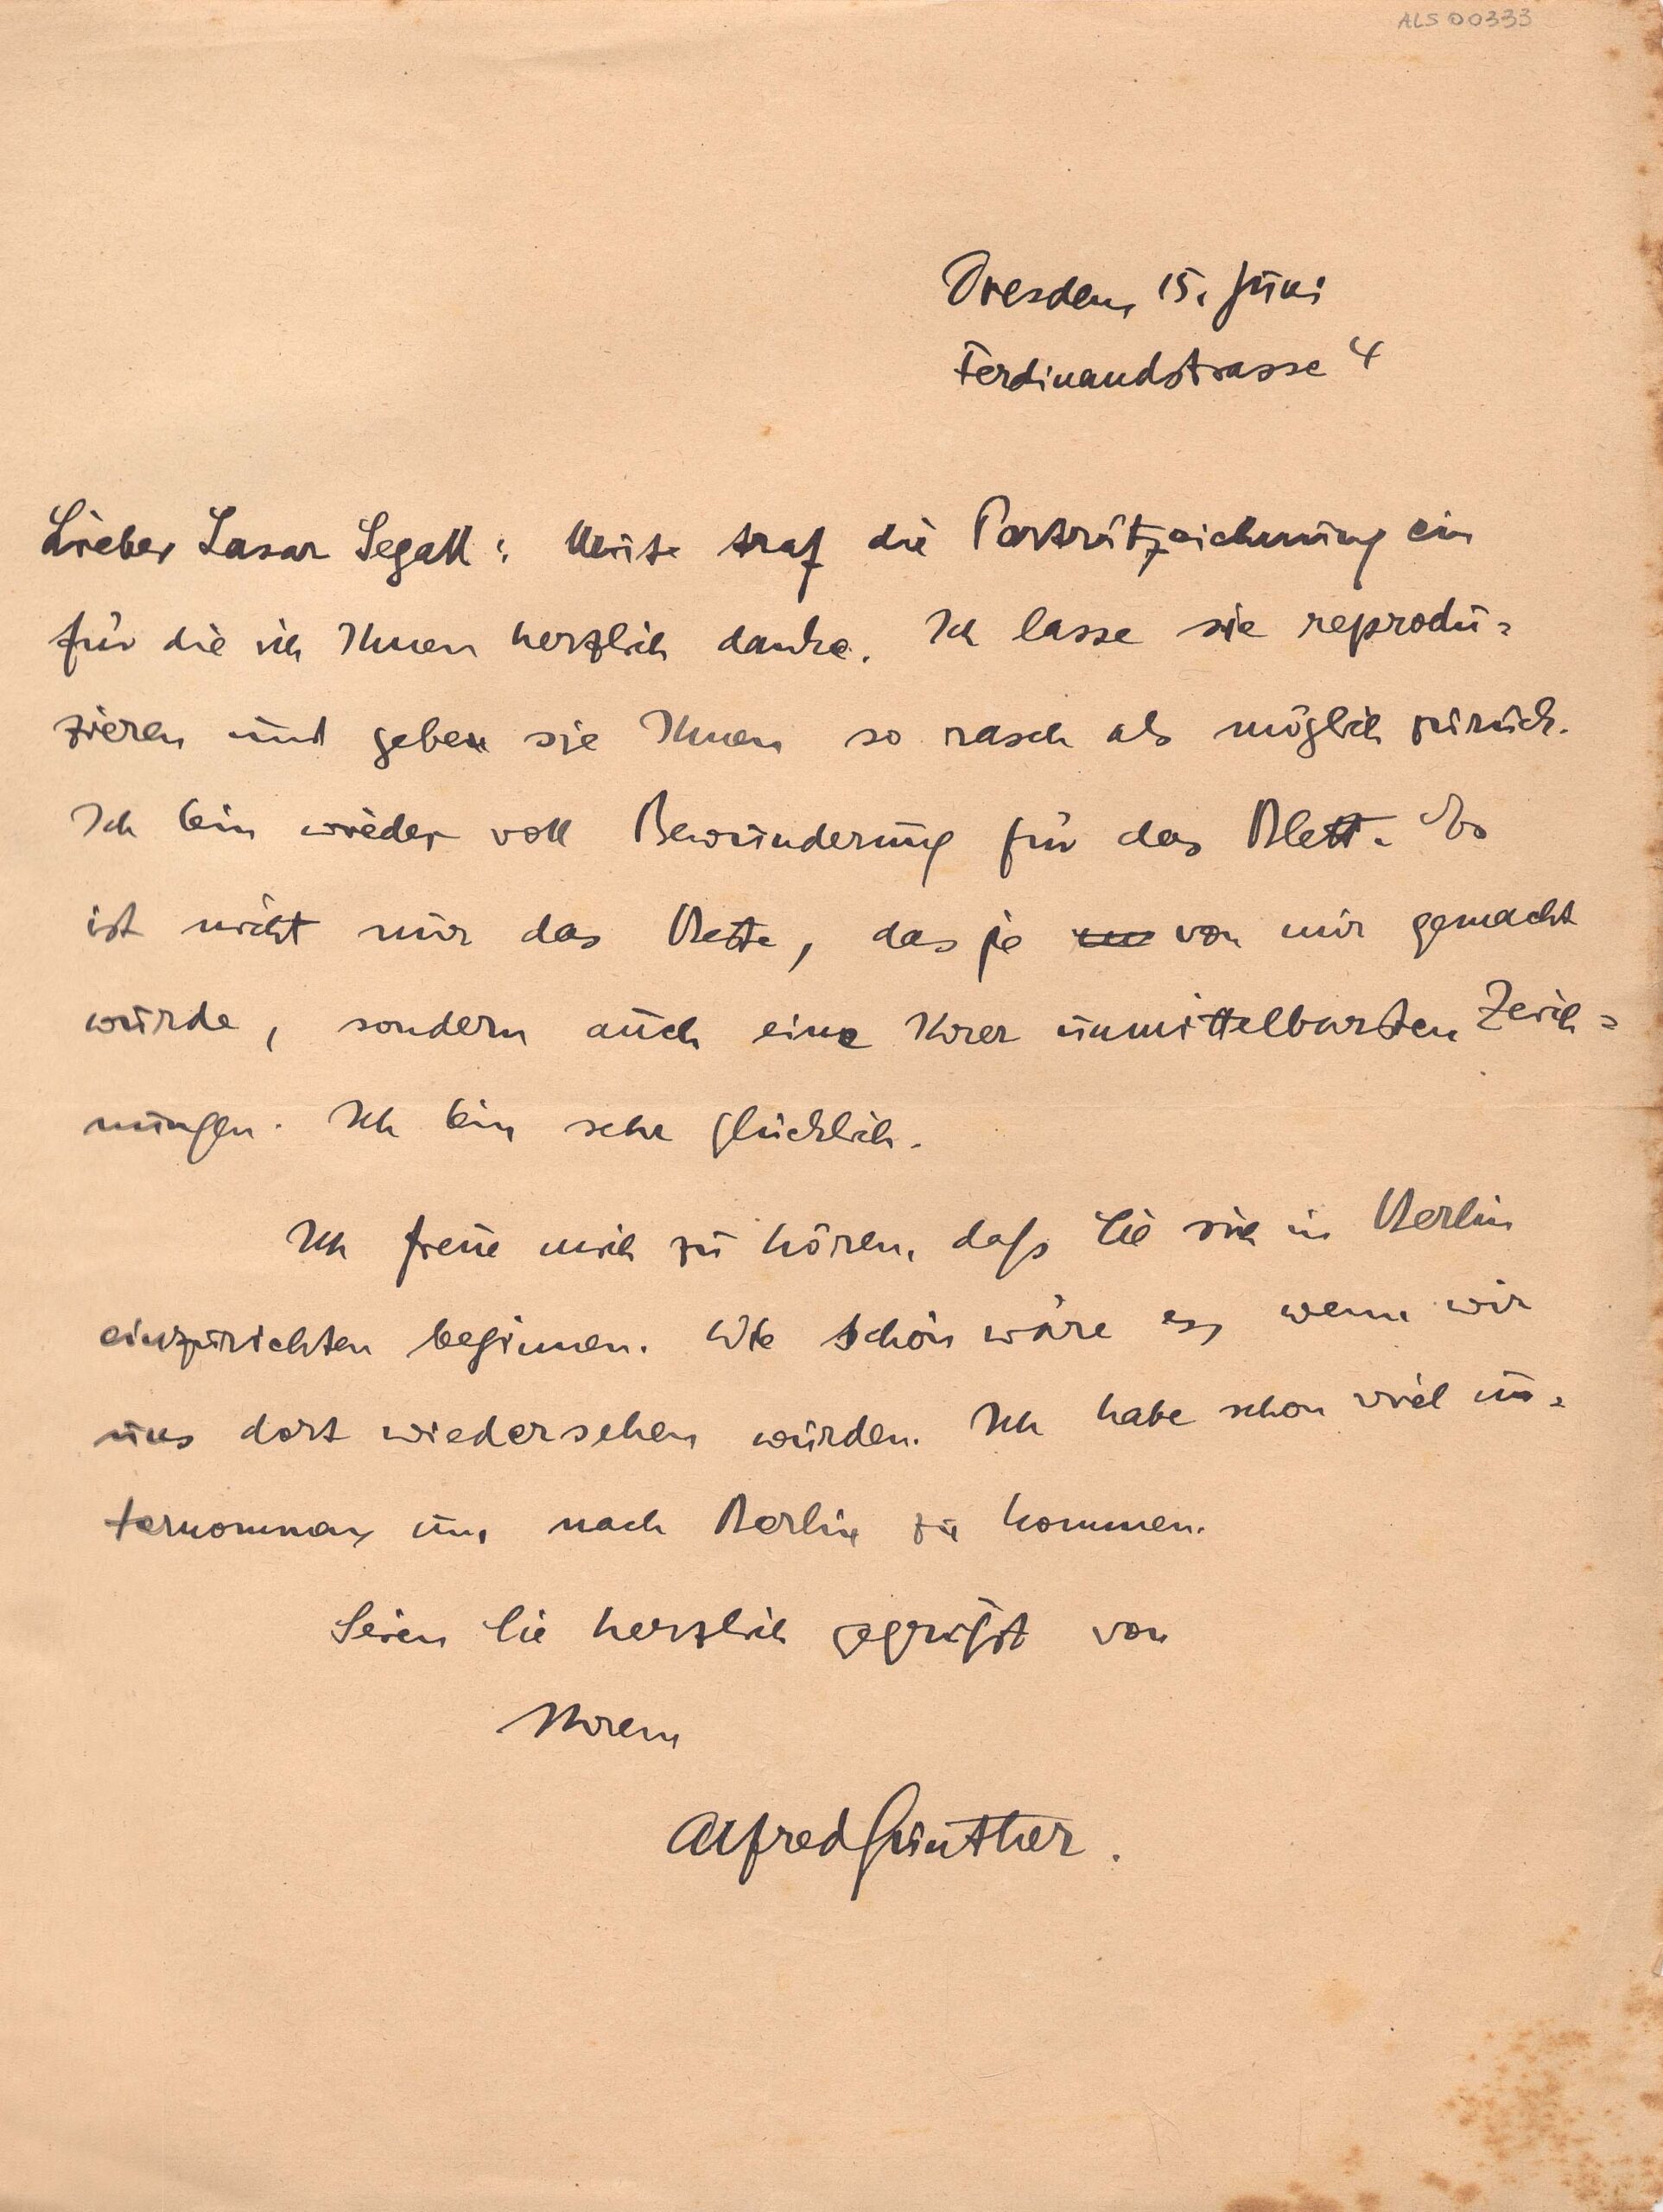 ALS 00333
Dresden, 15. Juni
Ferdinandstrasse 4
Lieber Lasar Segall: Heute traf die Porträtzeichnung ein
für die ich Ihnen herzlich danke. Ich lasse sie reprodu=
zieren und geben sie Ihnen so rasch als möglich zurück.
Ich bin wieder voll Bewunderung für das Blatt. Es
ist nicht nur das Beste, das je von mir gemacht
wurde, sondern auch eine Ihrer unmittelbarsten Zeich=
nungen. Ich bin sehr glücklich.
Ich freue mich zu hören, daß Sie sich in Berlin
einzurichten beginnen. Wie schön wäre es, wenn wir
uns dort wiedersehen würden. Ich habe schon viel un=
ternommen um nach Berlin zu kommen.
Seien Sie herzlich gegrüßt von
Ihrem
Alfred Günther.